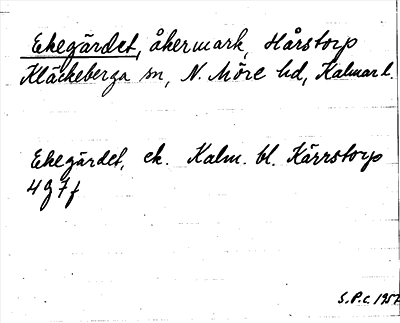 Ekegärdet, åkermark, Hårstorp
Kläckeberga sn, N. Möre hd, Kalmar l.
Ekegärdet, ek. Kalm. bl. Kärrstorp
4 g 7 f
S.P.C. 1957